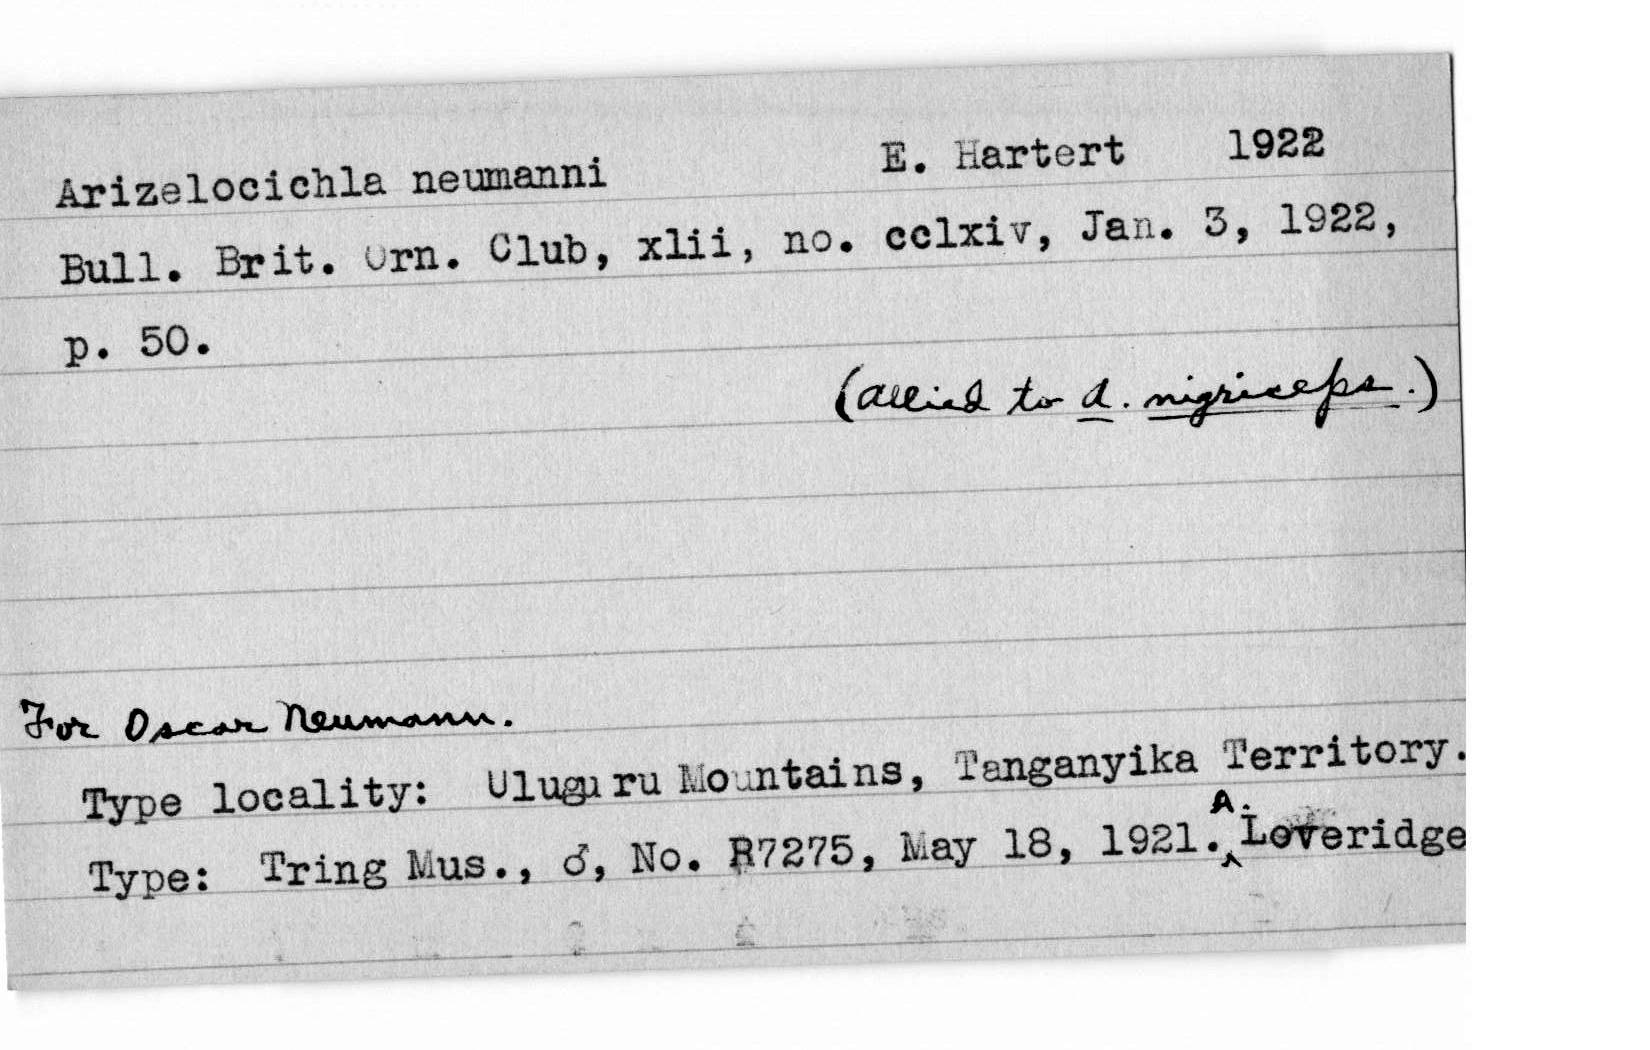 Arizelocichla neumanni E. Hartert 1922
Bull. Brit. Orn. Club, xlii, no. cclxiv, Jan. 3, 1922,
p. 50.
(allied to A. nigriceps.)
For Oscar Neumann.
Type locality: Uluguru Mountains, Tanganyika Territory.
Type: Tring Mus., ♂, No. R7275, May 18, 1921. A. Loveridge